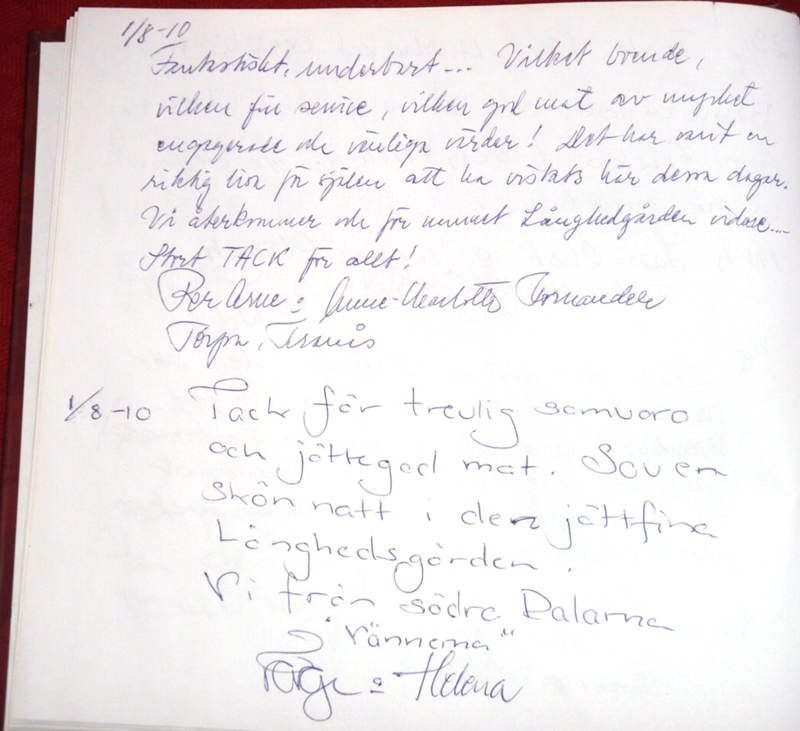 1/8-10
Fantastiskt, underbart... Vilket boende,
vilken fin service, vilken god mat av mycket
engagerade och vänliga värdar! Det har varit en
riktig bon för själen att ha vistats här dessa dagar.
Vi återkommer och för numret Långhedgården vidare....
Stort TACK för allt!
Per Arne & Anne-Charlotte
Torpa, Tranås
1/8-10 Tack för trevlig samvaro
och jättegod mat. Sov en
skön natt i den jättfina
Långhedsgården.
Vi från södra Dalarna
"Vännerna"
& Helena